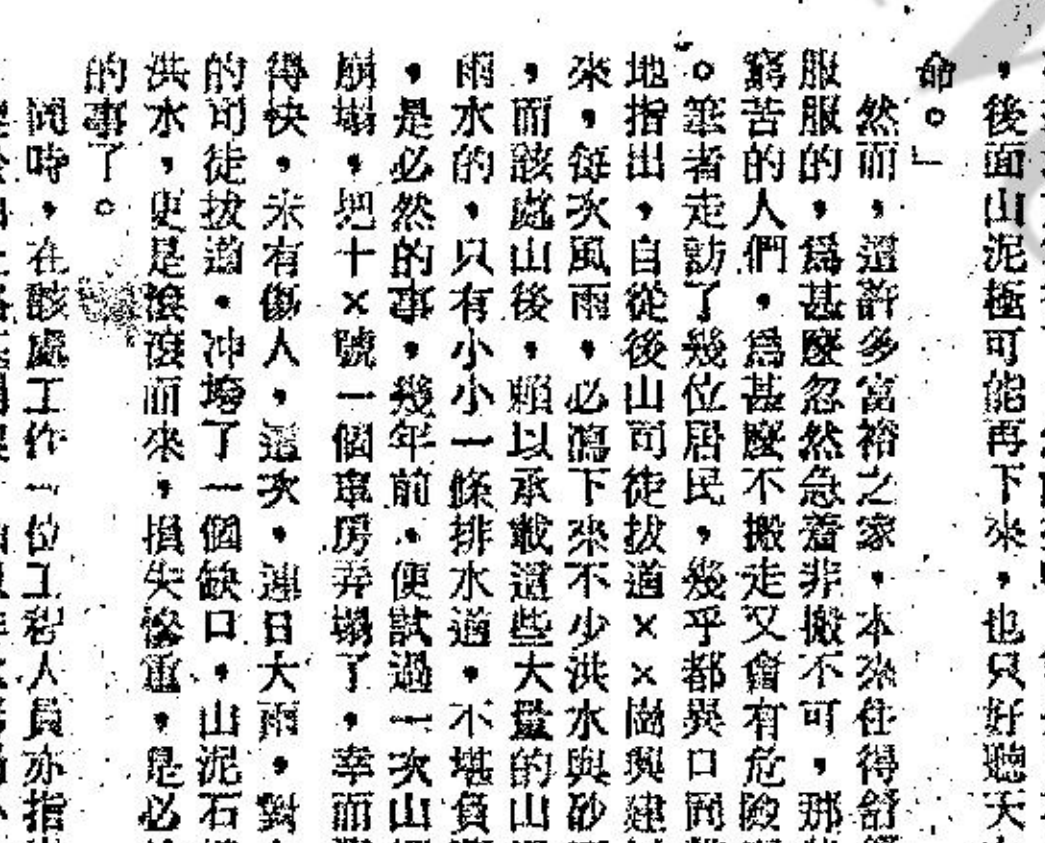 ，後面山泥極可能再下來，也只好聽天
命。」
然而，這許多富裕之家，本來住得舒
服服的，爲甚麼忽然急着非搬不可，那
窮苦的人們，爲甚麼不搬走又會有危險
。筆者走訪了幾位居民，幾乎都異口同
地指出，自從後山司徒拔道××崗興建
來，每次風雨，必瀉下來不少洪水與砂
，而該處山後，賴以承載這些大量的山
雨水的，只有小小一條排水道，不堪負
，是必然的事，幾年前，便試過一次山
崩塌，把十×號一個車房弄塌了，幸而
得快，未有傷人，這次，連日大雨，對
的司徒拔道，冲塲了一個缺口，山泥石
洪水，更是滾滾而來，損失慘重，是必
的事了。
同時，在該處工作一位工程人員亦指